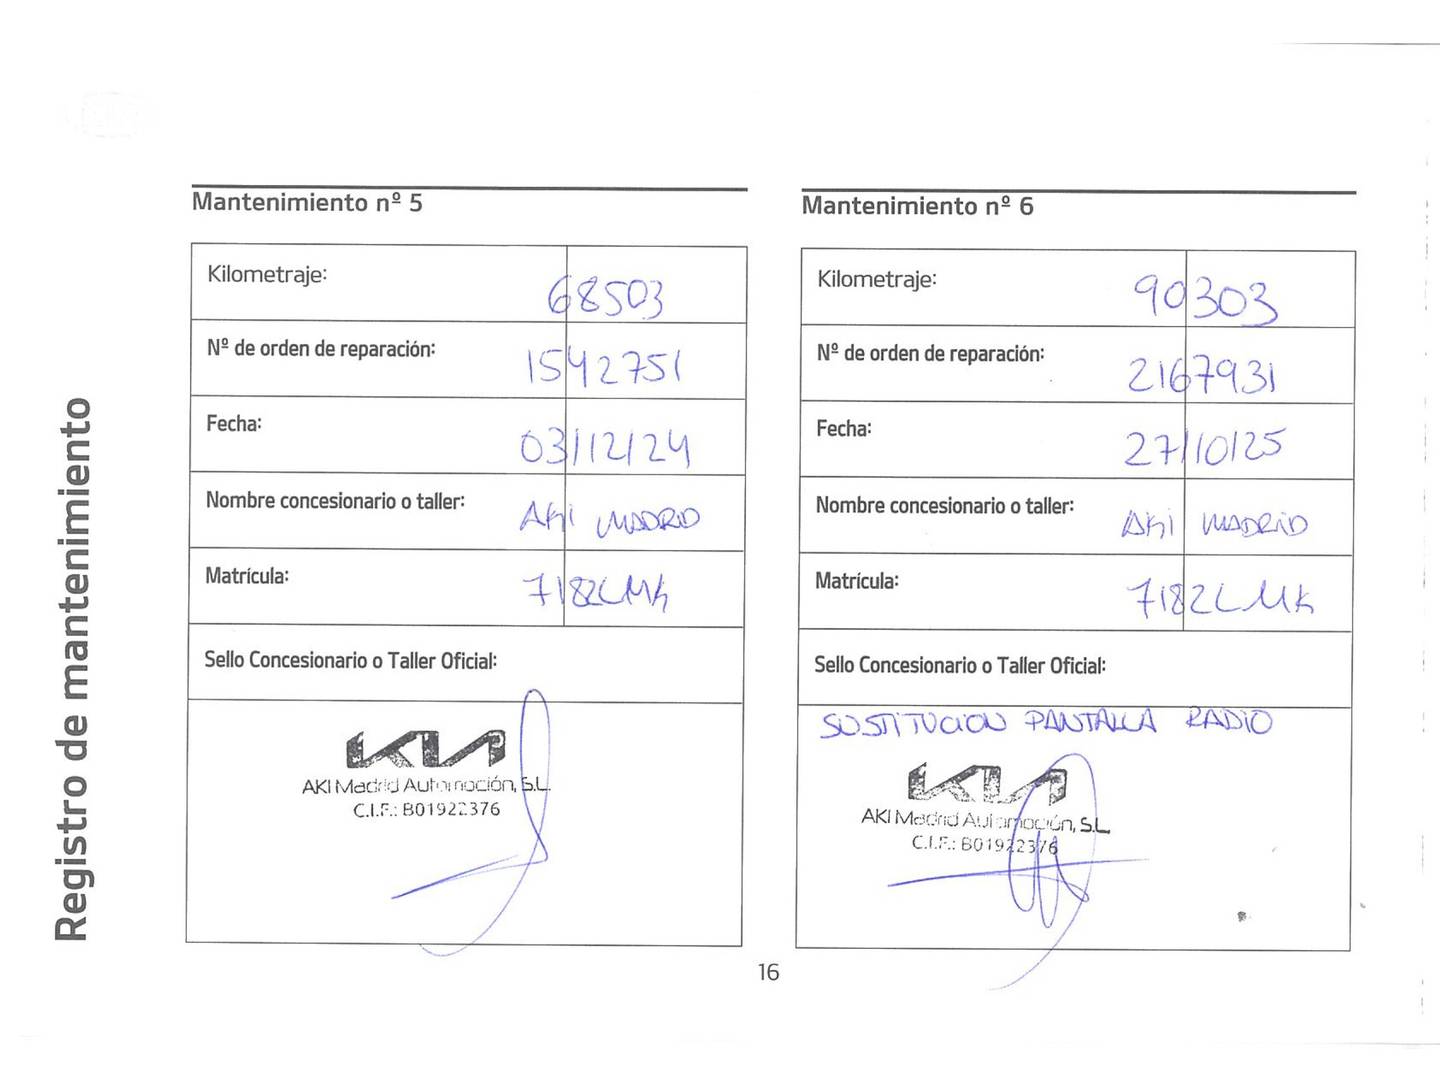 Registro de mantenimiento
Mantenimiento nº 5
Kilometraje: 68503
Nº de orden de reparación: 1542751
Fecha: 03/12/24
Nombre concesionario o taller: AKI MADRID
Matrícula: 7182LMK
Sello Concesionario o Taller Oficial:
KIA
AKI Madrid Automoción, S.L.
C.I.F.: B01922376
Mantenimiento nº 6
Kilometraje: 90303
Nº de orden de reparación: 2167931
Fecha: 27/10/25
Nombre concesionario o taller: AKI MADRID
Matrícula: 7182LMK
Sello Concesionario o Taller Oficial:
SUSTITUCION PANTALLA RADIO
KIA
AKI Madrid Automoción, S.L.
C.I.F.: B01922376
16